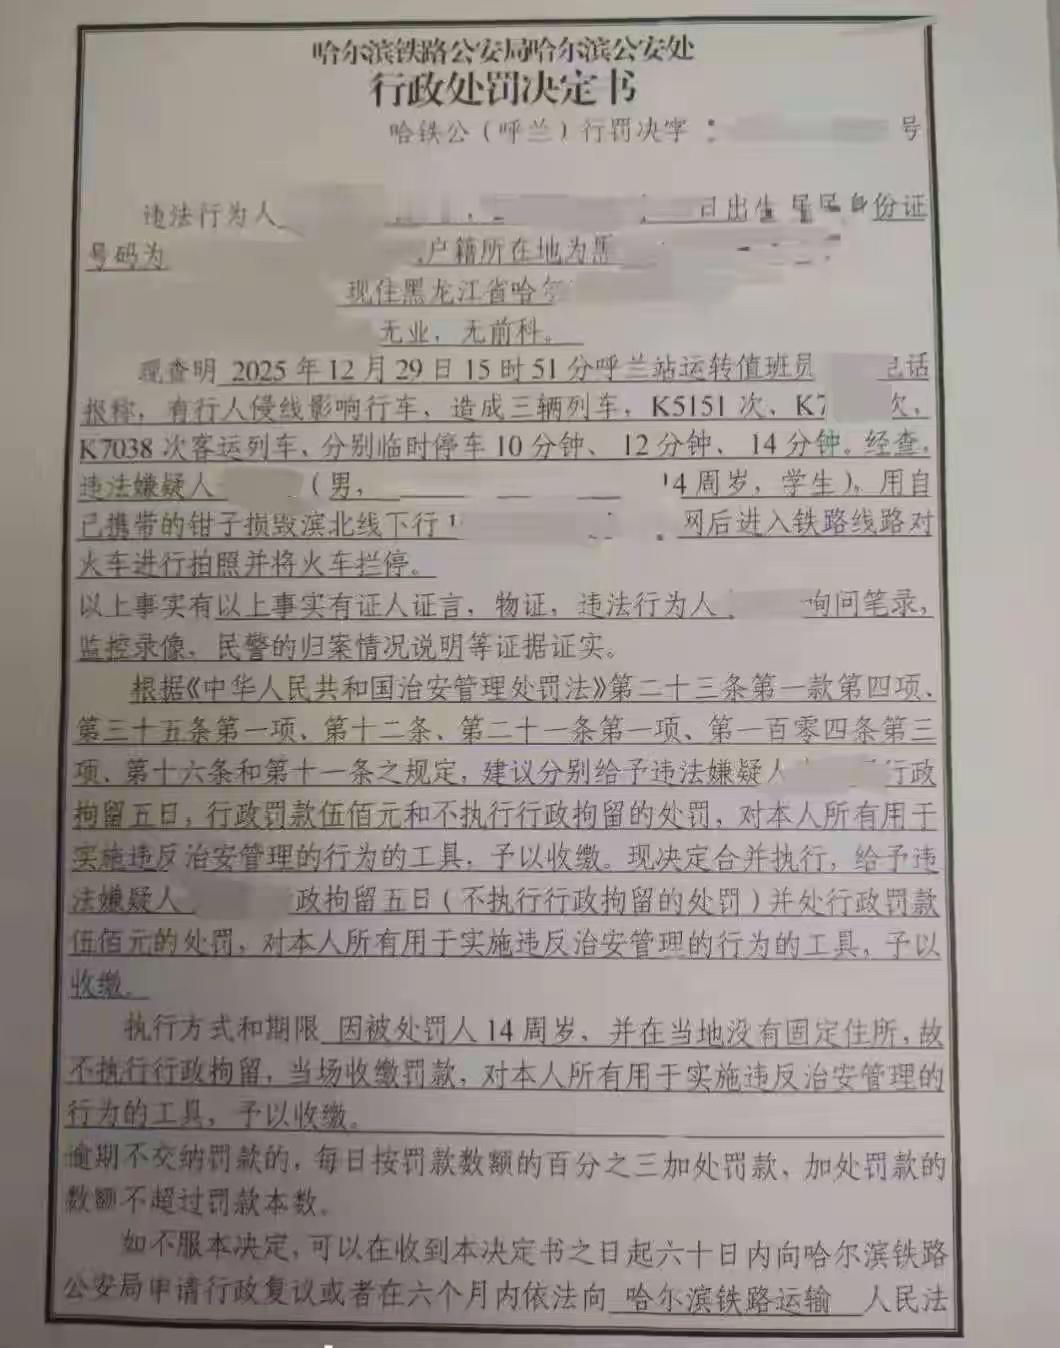 哈尔滨铁路公安局哈尔滨公安处
行政处罚决定书
哈铁公（呼兰）行罚决字： 号
违法行为人 日出生 居民身份证
号码为 户籍所在地为黑
现住黑龙江省哈尔
无业，无前科。
现查明 2025年12月29日15时51分呼兰站运转值班员 电话
报称，有行人侵线影响行车、造成三辆列车，K5151次、K7 次、
K7038次客运列车、分别临时停车10分钟、12分钟、14分钟。经查，
违法嫌疑人 （男， 14周岁，学生），用自
己携带的钳子损毁滨北线下行 网后进入铁路线路对
火车进行拍照并将火车拦停。
以上事实有以上事实有证人证言，物证，违法行为人 询问笔录，
监控录像、民警的归案情况说明等证据证实。
根据《中华人民共和国治安管理处罚法》第二十三条第一款第四项、
第三十五条第一项、第十二条、第二十一条第一项、第一百零四条第三
项、第十六条和第十一条之规定，建议分别给予违法嫌疑人 行政
拘留五日，行政罚款伍佰元和不执行行政拘留的处罚，对本人所有用于
实施违反治安管理的行为的工具，予以收缴。现决定合并执行，给予违
法嫌疑人 政拘留五日（不执行行政拘留的处罚）并处行政罚款
伍佰元的处罚，对本人所有用于实施违反治安管理的行为的工具，予以
收缴。
执行方式和期限 因被处罚人14周岁、并在当地没有固定住所，故
不执行行政拘留，当场收缴罚款，对本人所有用于实施违反治安管理的
行为的工具，予以收缴。
逾期不交纳罚款的，每日按罚款数额的百分之三加处罚款，加处罚款的
数额不超过罚款本数。
如不服本决定，可以在收到本决定书之日起六十日内向哈尔滨铁路
公安局申请行政复议或者在六个月内依法向 哈尔滨铁路运输 人民法